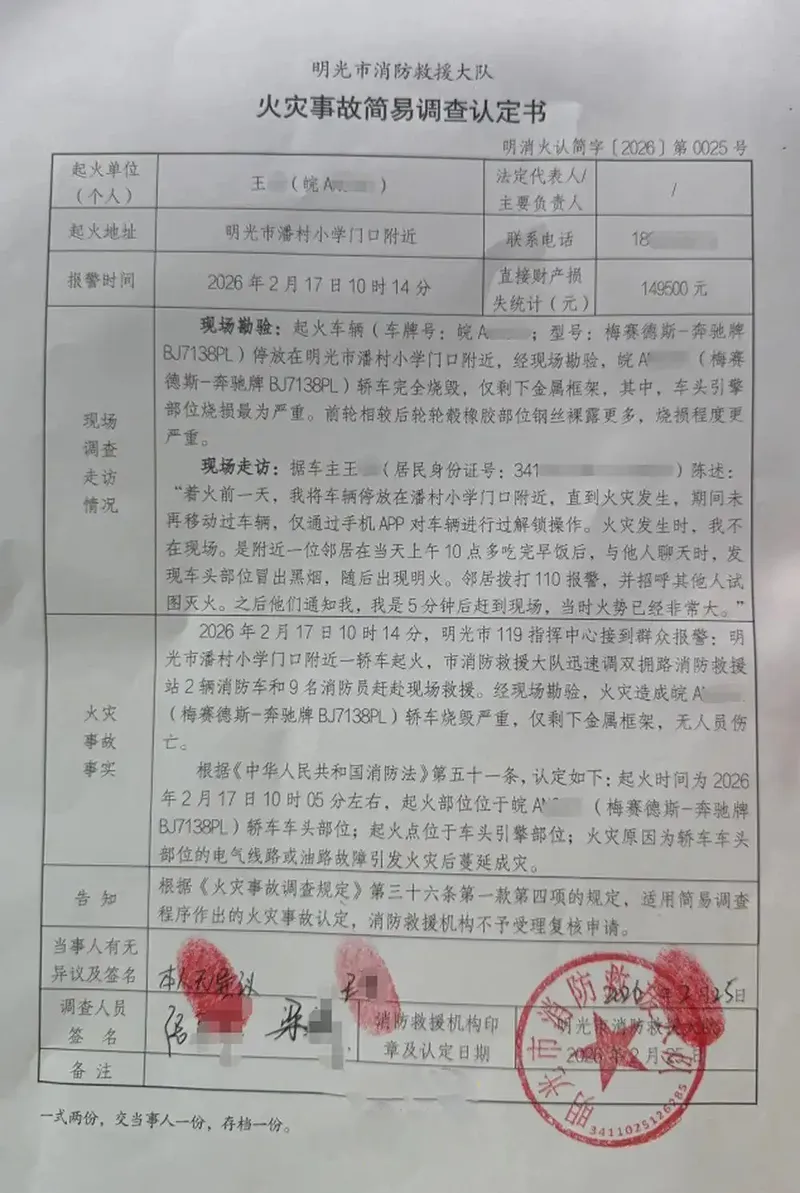 明光市消防救援大队
火灾事故简易调查认定书
明消火认简字〔2026〕第0025号
起火单位（个人） 王（皖A） 法定代表人/主要负责人 /
起火地址 明光市潘村小学门口附近 联系电话 18
报警时间 2026年2月17日10时14分 直接财产损失统计（元） 149500元
现场调查走访情况
现场勘验：起火车辆（车牌号：皖A；型号：梅赛德斯-奔驰牌
BJ7138PL）停放在明光市潘村小学门口附近，经现场勘验，皖A（梅赛
德斯-奔驰牌BJ7138PL）轿车完全烧毁，仅剩下金属框架，其中，车头引擎
部位烧损最为严重。前轮相较后轮轮毂橡胶部位钢丝裸露更多，烧损程度更
严重。
现场走访：据车主王（居民身份证号：341）陈述：
“着火前一天，我将车辆停放在潘村小学门口附近，直到火灾发生，期间未
再移动过车辆，仅通过手机APP对车辆进行过解锁操作。火灾发生时，我不
在现场。是附近一位邻居在当天上午10点多吃完早饭后，与他人聊天时，发
现车头部位冒出黑烟，随后出现明火。邻居拨打110报警，并招呼其他人试
图灭火。之后他们通知我，我是5分钟后赶到现场，当时火势已经非常大。”
火灾事故事实
2026年2月17日10时14分，明光市119指挥中心接到群众报警：明
光市潘村小学门口附近一轿车起火，市消防救援大队迅速调双拥路消防救援
站2辆消防车和9名消防员赶赴现场救援。经现场勘验，火灾造成皖A
（梅赛德斯-奔驰牌BJ7138PL）轿车烧毁严重，仅剩下金属框架，无人员伤
亡。
根据《中华人民共和国消防法》第五十一条，认定如下：起火时间为2026
年2月17日10时05分左右，起火部位位于皖A（梅赛德斯-奔驰牌
BJ7138PL）轿车车头部位；起火点位于车头引擎部位；火灾原因为轿车车头
部位的电气线路或油路故障引发火灾后蔓延成灾。
告知 根据《火灾事故调查规定》第三十六条第一款第四项的规定，适用简易调查
程序作出的火灾事故认定，消防救援机构不予受理复核申请。
当事人有无异议及签名 本人无异议 王 2026年2月25日
调查人员签名 梁 消防救援机构印章及认定日期 明光市消防救援大队
2026年2月25日
备注
明光市消防救援大队
3411025126285
一式两份，交当事人一份，存档一份。